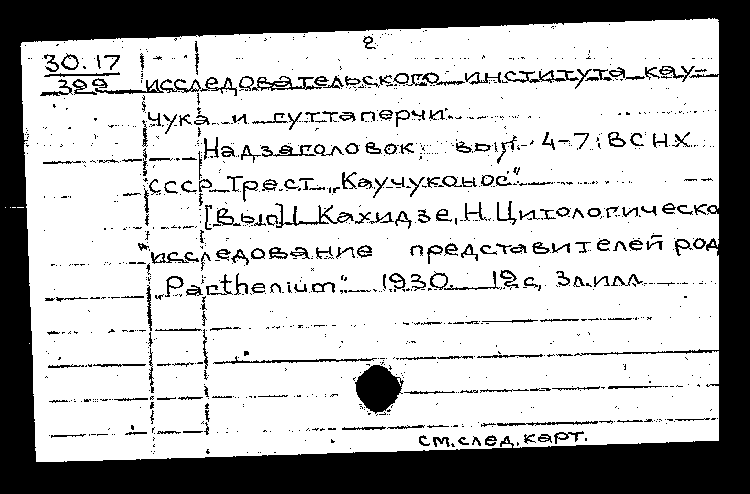 2
30.17
399 исследовательского института кау-
чука и гуттаперчи.
Надзаголовок: вып. 4-7: ВСНХ
СССР Трест „Каучуконос“
[Вып] 1 Кахидзе, Н. Цитологическо
исследование представителей род
„Parthenium“. 1930. 12с, 3л.илл
см.след.карт.